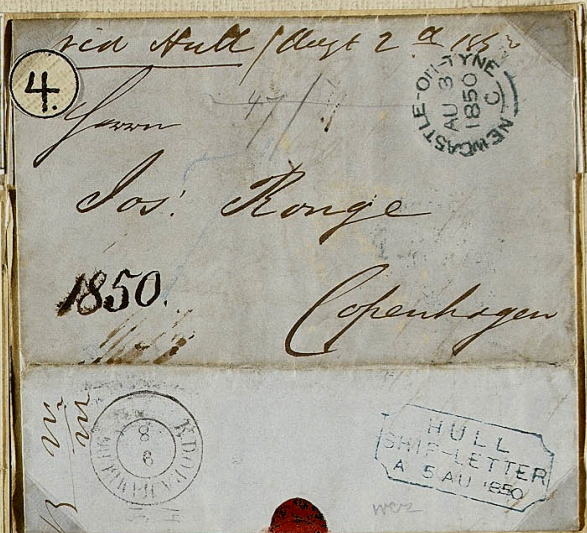 via Hull / Augt 2d 1850
4.
NEWCASTLE-ON-TYNE
AU 3
1850
C
47/
Herrn
Jos: Ronge
1850.
Copenhagen
K.D.O.P.A. HAMBURG
8
8
HULL
SHIP-LETTER
A 5 AU 1850